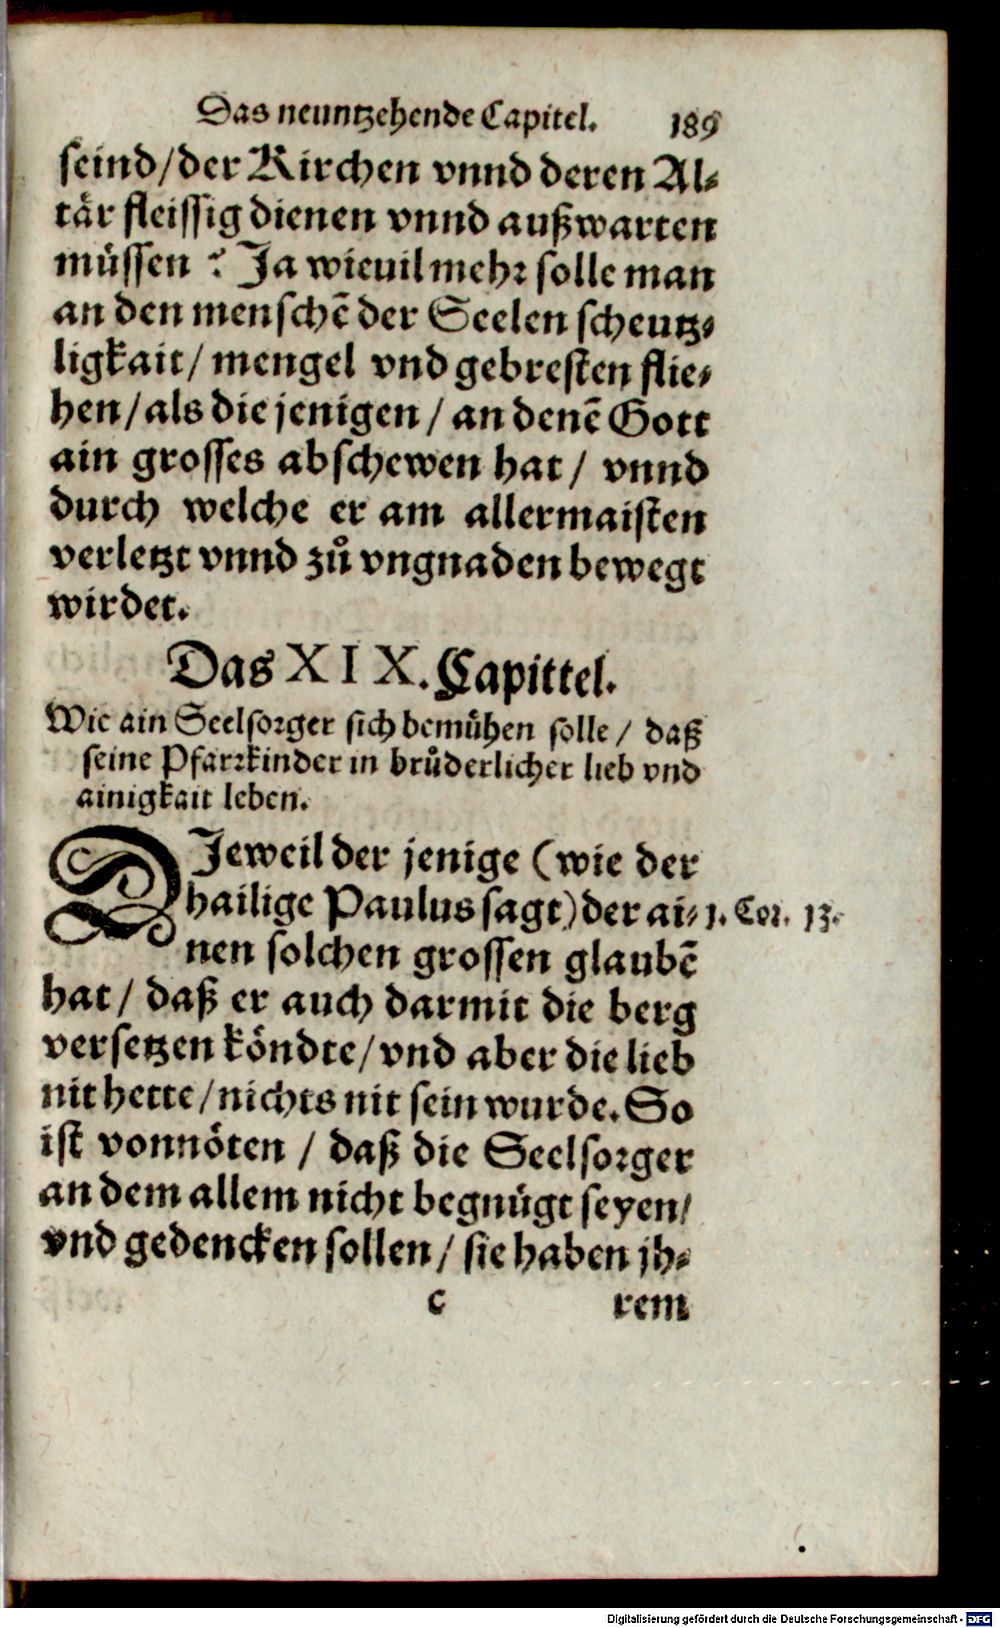 Das neuntzehende Capitel. 189
seind/der Kirchen vnnd deren Al⸗
tår fleissig dienen vnnd außwarten
müssen ? Ja wieuil mehr solle man
an den menschē der Seelen scheutz⸗
ligkait/ mengel vnd gebresten flie⸗
hen/als die jenigen/ an denē Gott
ain grosses abschewen hat/ vnnd
durch welche er am allermaisten
verletzt vnnd zů vngnaden bewegt
wirdet.
Das XIX. Capittel.
Wie ain Seelsorger sich bemühen solle/ daß
seine Pfarrkinder in brüderlicher lieb vnd
ainigkait leben.
DJeweil der jenige (wie der
hailige Paulus sagt) der ai⸗ 1. Cor. 13.
nen solchen grossen glaubē
hat/ daß er auch darmit die berg
versetzen köndte/vnd aber die lieb
nit hette/nichts nit sein wurde. So
ist vonnöten/ daß die Seelsorger
an dem allem nicht begnügt seyen/
vnd gedencken sollen/ sie haben jh⸗
c rem
Digitalisierung gefördert durch die Deutsche Forschungsgemeinschaft - DFG